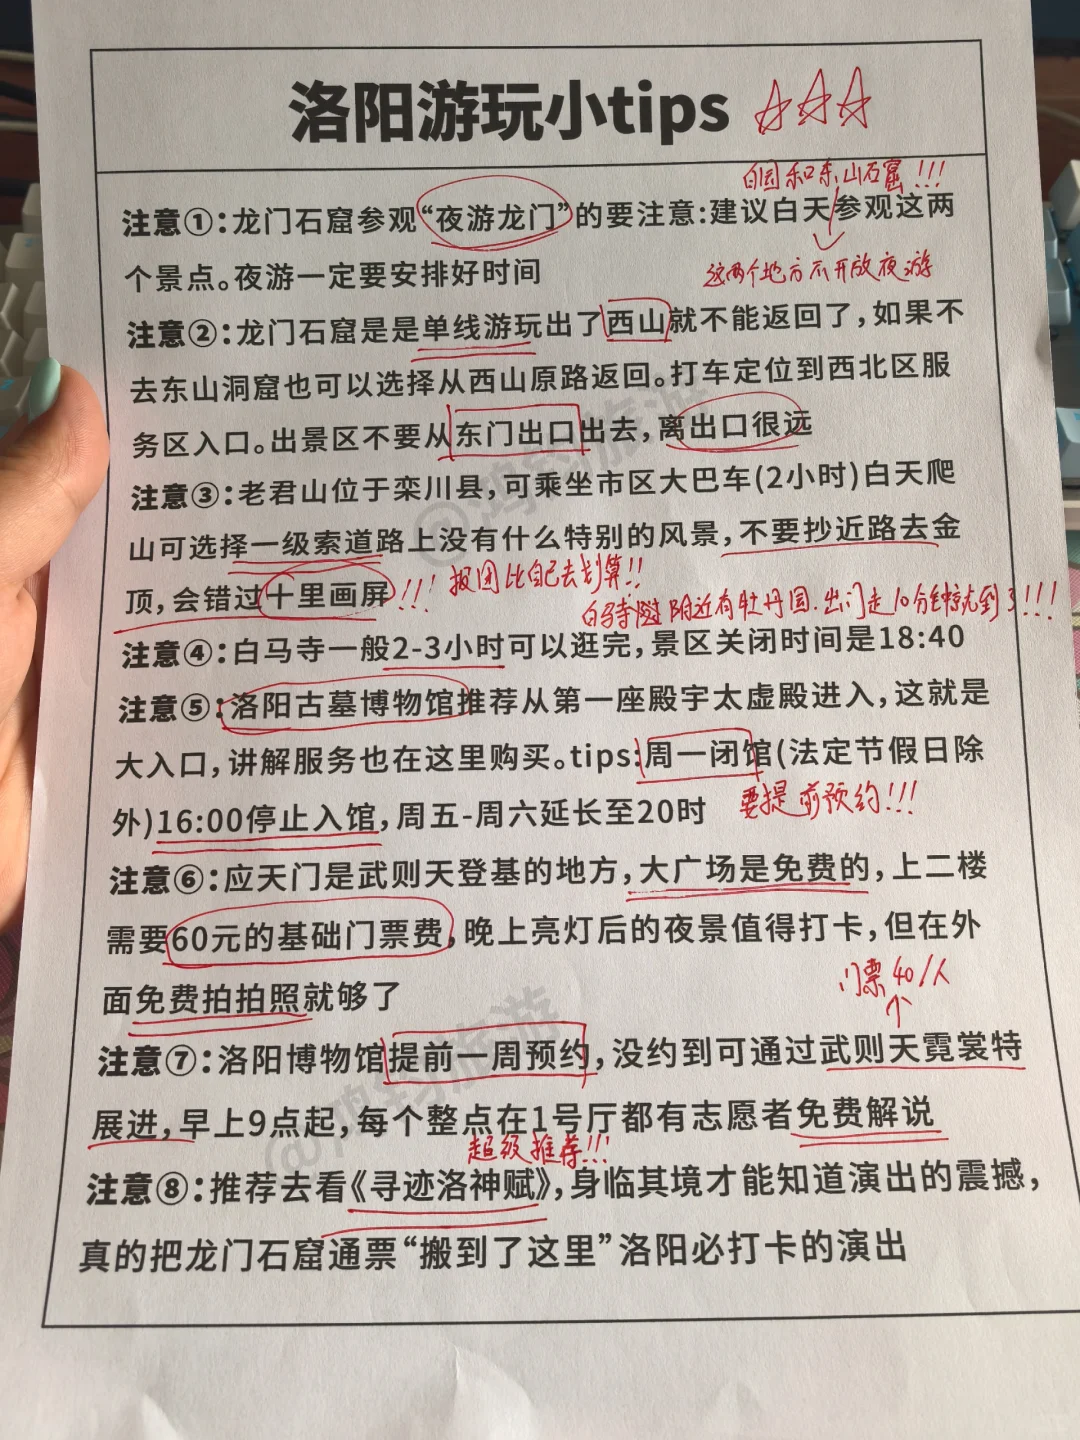 洛阳游玩小tips
白园和东山石窟!!!
注意①:龙门石窟参观“夜游龙门”的要注意:建议白天参观这两
个景点。夜游一定要安排好时间
这两个地方不开放夜游
注意②:龙门石窟是是单线游玩出了西山就不能返回了,如果不
去东山洞窟也可以选择从西山原路返回。打车定位到西北区服
务区入口。出景区不要从东门出口出去,离出口很远
注意③:老君山位于栾川县,可乘坐市区大巴车(2小时)白天爬
山可选择一级索道路上没有什么特别的风景,不要抄近路去金
顶,会错过十里画屏!!!
报团比自己去划算!!
白马寺附近有牡丹园.出门走10分钟就到了!!!
注意④:白马寺一般2-3小时可以逛完,景区关闭时间是18:40
注意⑤:洛阳古墓博物馆推荐从第一座殿宇太虚殿进入,这就是
大入口,讲解服务也在这里购买。tips:周一闭馆(法定节假日除
外)16:00停止入馆,周五-周六延长至20时
要提前预约!!!
注意⑥:应天门是武则天登基的地方,大广场是免费的,上二楼
需要60元的基础门票费,晚上亮灯后的夜景值得打卡,但在外
面免费拍拍照就够了
门票40/人
注意⑦:洛阳博物馆提前一周预约,没约到可通过武则天霓裳特
展进,早上9点起,每个整点在1号厅都有志愿者免费解说
超级推荐!!!
注意⑧:推荐去看《寻迹洛神赋》,身临其境才能知道演出的震撼,
真的把龙门石窟通票“搬到了这里”洛阳必打卡的演出
@鸿钧旅游
@鸿钧旅游